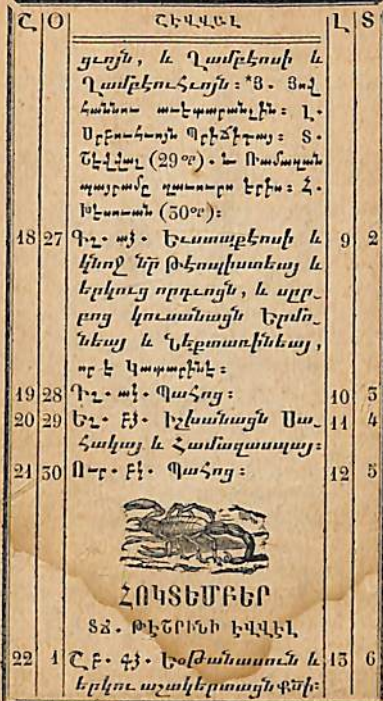 Շ Օ ՇԷՎՎԱԼ Լ Տ
ցւոյն, և Ղամբէոսի և
Ղամբէուհւոյն։ *Յ. Յով
հաննու աւետարանչին։ Լ.
Սրբուհւոյն Պրիժիտայ։ Տ.
Շէվվալ (29օր). և Ռամազան
պայրամը
(30օր)։
18 27 Գչ. այ. Եւստաքէոսի և 9 2
կնոջ նր Թէոպիստեայ և
երկուց որդւոցն, և սըր֊
բոց կուսանացն Երմո֊
նեայ և Նեքտառինեայ,
որ է Կատարինէ։
19 28 Դչ. Պահոց։ 10 3
20 29 Եչ. բձ. Իշխանացն Սա֊ 11 4
հակայ և Համազասպայ։
21 30 Ուր. բկ. Պահոց։ 12 5
ՀՈԿՏԵՄԲԵՐ
ՏՃ. ԹԷՇՐԻՆԻ ԷՎՎԷԼ
22 1 Շբ. գձ. ԵօԹանասուն և 13 6
երկու աշակերտացն Քնի։